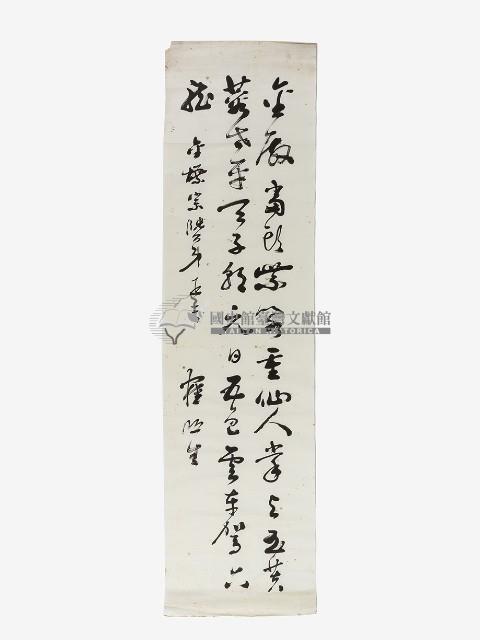 金殿當頭紫閣重仙人掌上玉芙
蓉太平天子朝元日五色雲車駕六
龍
國史館臺灣文獻館
TAIWAN HISTORICA